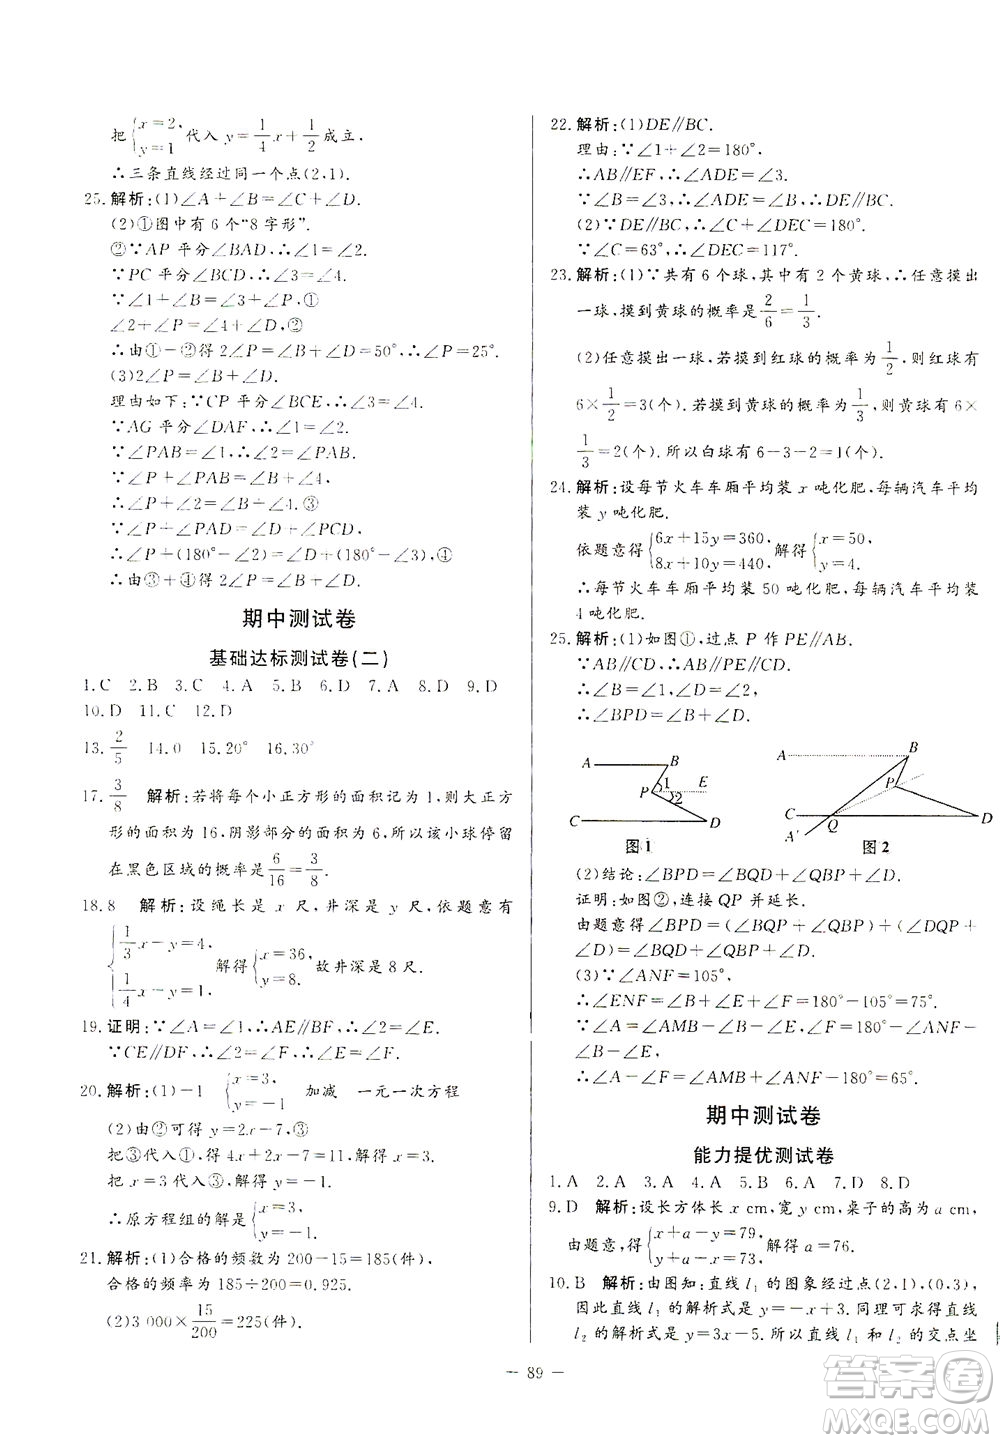 把{x=2, y=1}代入 y=1/4x+1/2成立.
∴三条直线经过同一个点(2,1).
25.解析:(1)∠A+∠B=∠C+∠D.
(2)①图中有 6 个“8 字形”.
②∵AP 平分∠BAD,∴∠1=∠2.
∵PC 平分∠BCD,∴∠3=∠4.
∵∠1+∠B=∠3+∠P,①
∠2+∠P=∠4+∠D,②
∴由①-②得 2∠P=∠B+∠D=50°,∴∠P=25°.
(3)2∠P=∠B+∠D.
理由如下:∵CP 平分∠BCE,∴∠3=∠4.
∵AG 平分∠DAF,∴∠1=∠2.
∵∠PAB=∠1,∴∠2=∠PAB.
∵∠P+∠PAB=∠B+∠4,
∴∠P+∠2=∠B+∠3,③
∵∠P+∠PAD=∠D+∠PCD,
∴∠P+(180°-∠2)=∠D+(180°-∠3),④
∴由③+④得 2∠P=∠B+∠D.
期中测试卷
基础达标测试卷(二)
1.C 2.B 3.C 4.A 5.B 6.D 7.A 8.D 9.D
10.D 11.C 12.D
13.2/5 14.0 15.20° 16.30°
17.3/8 解析:若将每个小正方形的面积记为 1,则大正方
形的面积为 16,阴影部分的面积为 6,所以该小球停留
在黑色区域的概率是6/16=3/8.
18.8 解析:设绳长是 x 尺,井深是 y 尺,依题意有
{1/3x-y=4, 1/4x-y=1,解得{x=36, y=8,故井深是 8 尺.
19.证明:∵∠A=∠1,∴AE∥BF,∴∠2=∠E.
∵CE∥DF,∴∠2=∠F,∴∠E=∠F.
20.解析:(1)-1 {x=3, y=-1 加减 一元一次方程
(2)由②可得 y=2x-7,③
把③代入①,得 4x+2x-7=11,解得 x=3,
把 x=3 代入③,得 y=-1,
∴原方程组的解是{x=3, y=-1.
21.解析:(1)合格的频数为 200-15=185(件),
合格的频率为 185÷200=0.925.
(2)3 000×15/200=225(件).
22.解析:(1)DE∥BC.
理由:∵∠1+∠2=180°,
∴AB∥EF,∴∠ADE=∠3.
∵∠B=∠3,∴∠ADE=∠B,∴DE∥BC.
(2)∵DE∥BC,∴∠C+∠DEC=180°.
∵∠C=63°,∴∠DEC=117°.
23.解析:(1)∵共有 6 个球,其中有 2 个黄球,∴任意摸出
一球,摸到黄球的概率是2/6=1/3.
(2)任意摸出一球,若摸到红球的概率为1/2,则红球有
6×1/2=3(个).若摸到黄球的概率为1/3,则黄球有 6×
1/3=2(个).所以白球有 6-3-2=1(个).
24.解析:设每节火车车厢平均装 x 吨化肥,每辆汽车平均
装 y 吨化肥.
依题意得{6x+15y=360, 8x+10y=440,解得{x=50, y=4.
∴每节火车车厢平均装 50 吨化肥,每辆汽车平均装
4 吨化肥.
25.解析:(1)如图①,过点 P 作 PE∥AB.
∵AB∥CD,∴AB∥PE∥CD.
∴∠B=∠1,∠D=∠2,
∴∠BPD=∠B+∠D.
A B P 1 2 E C D
图 1
A B P C Q D A′
图 2
(2)结论:∠BPD=∠BQD+∠B+∠D.
证明:如图②,连接 QP 并延长.
由题意得∠BPD=(∠BQP+∠B)+(∠DQP+
∠D)=∠BQD+∠B+∠D.
(3)∵∠ANF=105°,
∴∠ENF=∠B+∠E+∠F=180°-105°=75°.
∵∠A=∠AMB-∠B-∠E,∠F=180°-∠ANF-
∠B-∠E,
∴∠A-∠F=∠AMB+∠ANF-180°=65°.
期中测试卷
能力提优测试卷
1.A 2.A 3.A 4.A 5.B 6.B 7.D 8.D
9.D 解析:设长方体长 x cm,宽 y cm,桌子的高为 a cm,
由题意,得{x+a-y=79, y+a-x=73,解得 a=76.
10.B 解析:由图知:直线 l₁ 的图象经过点(2,1),(0,3),
因此直线 l₁ 的解析式是 y=-x+3.同理可求得直线
l₂ 的解析式是 y=3x-5.所以直线 l₁ 和 l₂ 的交点坐
— 89 —
答案圈
MXQE.COM